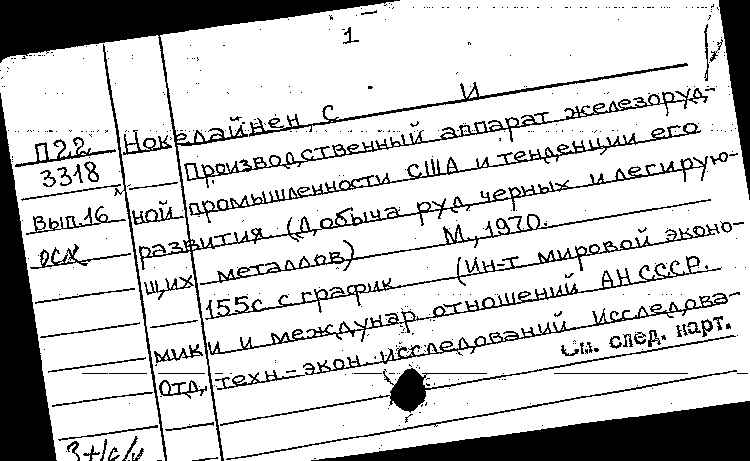 1
Нокелайнен, С И
П22
3318
Вып.16
осл
Производственный аппарат железоруд-
ной промышленности США и тенденции его
развития (Добыча руд черных и легирую-
щих металлов) М., 1970.
155с с график (Ин-т мировой эконо-
мики и междунар отношений АН СССР.
Отд. техн.-экон. исследований Исследова-
См. след. карт.